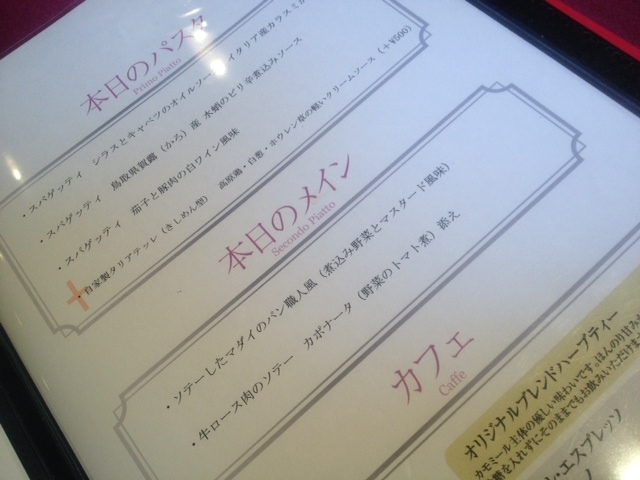 本日のパスタ
Primo Piatto
・スパゲッティ シラスとキャベツのオイルソース イタリア産カラスミ
・スパゲッティ 鳥取県賀露（かろ）産 水蛸のピリ辛煮込みソース
・スパゲッティ 茄子と豚肉の白ワイン風味
・自家製タリアテッレ（きしめん型） 高原鶏・白葱・ホウレン草の軽いクリームソース（+¥500）
本日のメイン
Secondo Piatto
・ソテーしたマダイのパン職人風（煮込み野菜とマスタード風味）
・牛ロース肉のソテー カポナータ（野菜のトマト煮）添え
カフェ
Caffe
オリジナルブレンドハーブティー
カモミール主体の優しい味わいです。ほんの片甘み
を入れずにそのままでもお飲みいただけま
・エスプレッソ